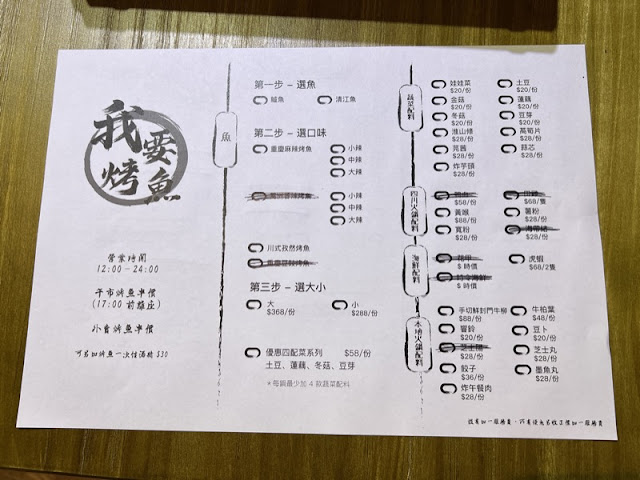 我要烤魚
營業時間
12:00-24:00
(17:00 前離座)
魚
第一步 – 選魚
鯇魚
清江魚
第二步 – 選口味
重慶麻辣烤魚
小辣
中辣
大辣
小辣
中辣
大辣
川式孜然烤魚
第三步 – 選大小
大
$368/份
小
$288/份
優惠四配菜系列 $58/份
土豆、蓮藕、冬菇、豆芽
*每鍋最少加 4 款蔬菜配料
蔬菜配料
娃娃菜
$20/份
土豆
$20/份
金菇
$20/份
蓮藕
$20/份
冬菇
$20/份
豆芽
$20/份
淮山條
$28/份
萵筍片
$20/份
芫茜
$28/份
蒜芯
$28/份
炸芋頭
$28/份
四川火鍋配料
$58/份
$68/隻
黃喉
$88/份
薯粉
$28/份
寬粉
$28/份
$28/份
海鮮配料
$ 時價
虎蝦
$68/2隻
$ 時價
本地火鍋配料
手切鮮封門牛柳
$88/份
牛柏葉
$48/份
響鈴
$20/份
豆卜
$20/份
$28/份
芝士丸
$28/份
餃子
$36/份
墨魚丸
$28/份
炸午餐肉
$28/份